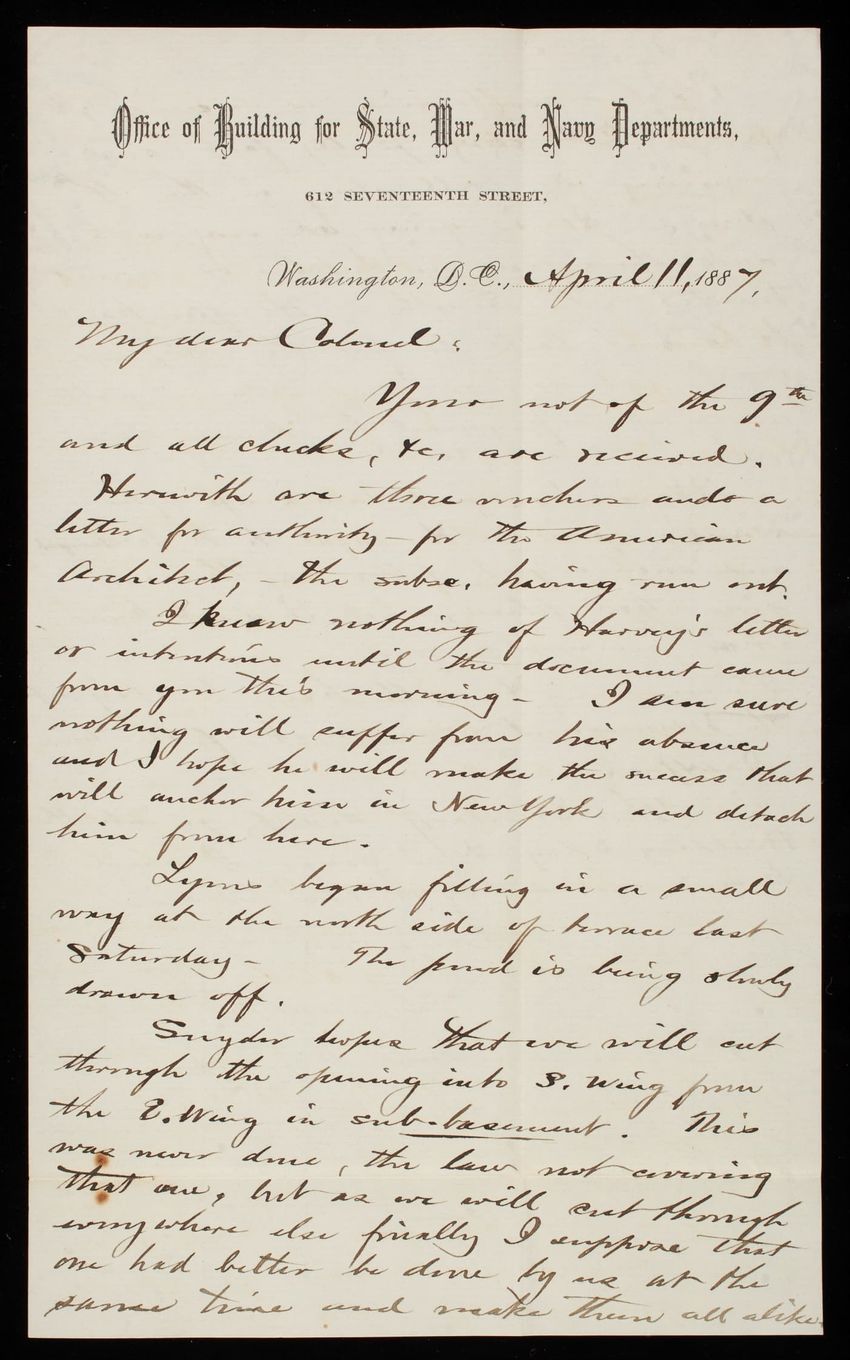 Office of Building for State, War, and Navy Departments,
612 SEVENTEENTH STREET,
Washington, D.C., April 11, 1887,
My dear Colonel:
Your not of the 9th
and all checks, &c, are received.
Herewith are three vouchers and a
letter for authority - for the American
Architect, - the subsc. having run out.
I knew nothing of Harvey's letter
or intentions until the document came
from you this morning - I am sure
nothing will suffer from his absence
and I hope he will make the success that
will anchor him in New York and detach
him from here.
Lyons began filling in a small
way at the north side of terrace last
Saturday - The pond is being slowly
drawn off.
Snyder hopes that we will cut
through the opening into S. Wing from
the E. Wing in sub-basement. This
was never done, the law not covering
that one, but as we will cut through
everywhere else finally I suppose that
one had better be done by us at the
same time and make them all alike.